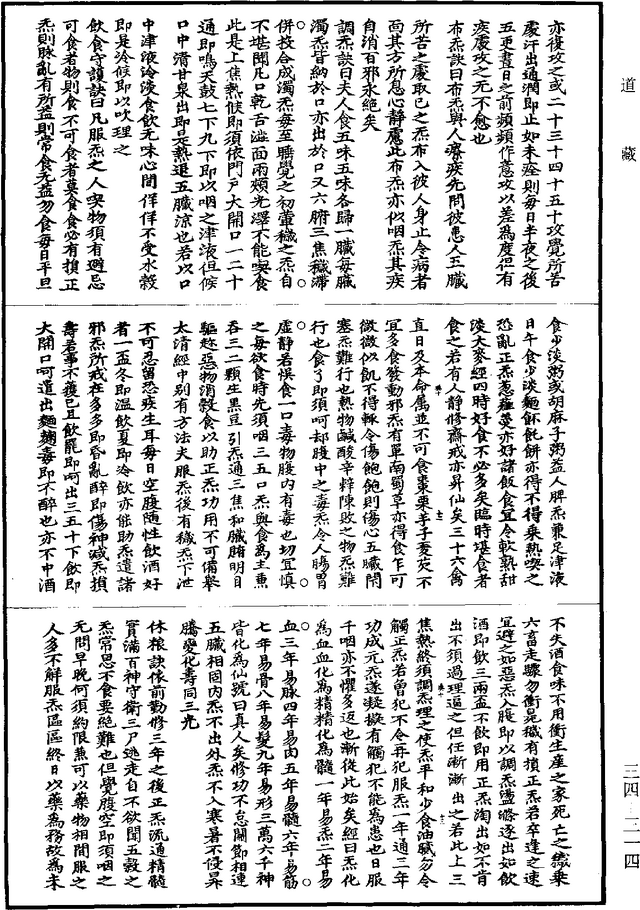 道藏
亦復攻之或二十三十四十五十攻覺所苦
處汗出通潤即止如未痊則每日半夜之後
五更晝日之前頻頻作意攻以差為度但有
疾處攻之无不愈也
布炁訣曰布炁與人療疾先問彼患人五臟
所苦之處取己之炁布入彼人身止令病者
面其方所息心靜慮此布炁亦似咽炁其疾
自消百邪永絕矣
調炁訣曰夫人食五味五味各歸一臟每臟
濁炁皆納於口亦出於口又六腑三焦穢滯
併投合成濁炁每至睡覺之初薰穢之炁自
不堪聞凡口乾舌澁面兩頰光澤不能喫食
此是上焦熱候即須依門戶大開口一二十
通即鳴天鼓七下九下即以咽之津液但候
口中清甘泉出即是熱退五臟涼也若以口
中津液冷淺食飲无味心間佯佯不受水穀
即是冷候即以吹理之
飲食守護訣曰凡服炁之人喫物須有避忌
可食者物則食不可食者莫食食必有損正
炁則脉亂有所益則常食无益勿食每日平旦
食少淡粥或胡麻子粥益人脾炁兼足津液
日午食少淡麵飥餅亦得不得乘熱喫之
恐亂正炁葱薤蔓亦好諸飯食宜令軟熟甜
淡大麥經四時好食不必多矣臨時堪食者
食之若有人靜修齋戒亦昇仙矣三十六禽
直日及本命屬並不可食棗栗李子菱芡不
宜多食發動邪炁有單南蜀草亦得食乍可
微微似飢不得輙令傷飽飽則傷心五臟閉
塞炁難行也熱物鹹酸辛辣陳敗之物炁難
行也食了即須呵却腹中之毒炁令人腸胃
虛靜若悮食一口毒物腹內有毒也切宜慎
之每欲食時先須咽三五口炁與食為主熏
吞三二顆生黑豆引炁通三焦和臟腑明目
驅趂惡物消穀食以助正炁功用不可備舉
太清經中別有方法夫服炁後有穢炁下泄
不可忍留恐疾生耳每日空腹隨性飲酒好
者一盃冬即溫飲夏即冷飲亦能助炁遣諸
邪炁所戒在多多即昏亂醉即傷神減炁損
壽若事不獲已且飲罷即呵出三五十下飲即
大開口呵遣出麵麴毒即不醉也亦不中酒
不失酒食味不用衝生產之家死亡之穢乘
六畜走驟勿衝晃穢有損正炁若卒逢之速
宜避之如惡炁入腹即以調炁盪滌逐出如飲
酒即飲三兩盃不飲即用正炁淘出如不肯
出不須過理逼之但任漸漸出之若此上三
焦熱終須調炁理之使炁平和少食油膩勿令
觸正炁若曾犯不令再犯服炁一年通三年
功成元炁遂凝擬有觸犯不能為患也日服
千咽亦不懼多返也漸從此始矣經曰炁化
為血血化為精精化為髓一年易炁二年易
血三年易脉四年易肉五年易髓六年易筋
七年易骨八年易髮九年易形三萬六千神
皆化為仙號曰真人矣修功不怠關節相連
五臟相固內炁不出外炁不入寒暑不侵昇
騰變化壽同三光
休粮訣依前勤修三年之後正炁流通精髓
實滿百神守衛三尸逃走自不欲聞五穀之
炁常思不食要絕難也但覺腹空即須咽之
无問早晚何須約限兼可以藥物相間服之
人多不解服炁區區終日以藥為務故為未
三四-三一四